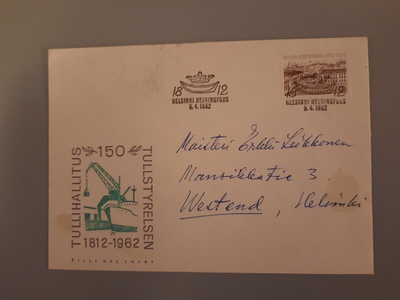 18 12
HELSINKI HELSINGFORS
9.4.1962
18 12
HELSINKI HELSINGFORS
9.4.1962
TULLIHALLITUS
150
TULLSTYRELSEN
1812-1962
First day cover
Maisteri Erkki Leikkonen
Mansikkatie 3.
Westend, Helsinki